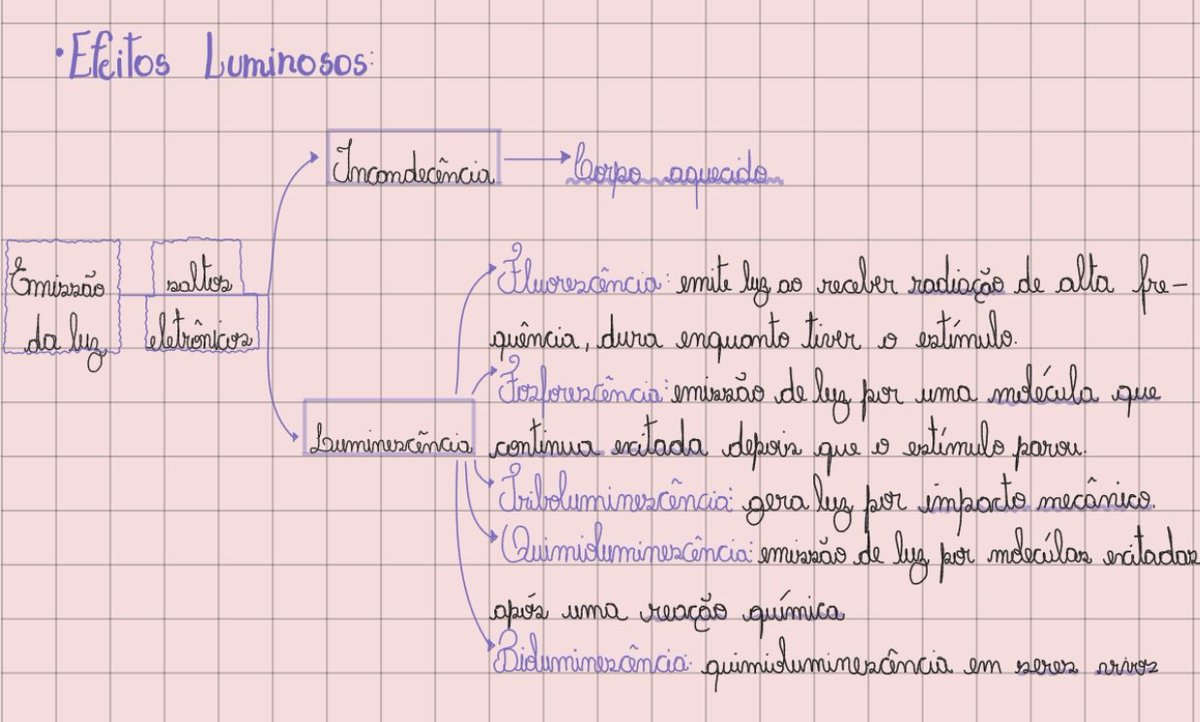 • Efeitos Luminosos:
Incondecência
Corpo aquecido
Emissão
da luz
saltos
eletrônicos
Fluorescência: emite luz ao receber radiação de alta fre-
quência, dura enquanto tiver o estímulo.
Fosforescência: emissão de luz por uma molécula que
Luminescência
continua excitada depois que o estímulo parou.
Triboluminescência: gera luz por impacto mecânico.
Quimioluminescência: emissão de luz por molecúlas excitadas
após uma reação química
Bioluminescência: quimioluminescência em seres vivos